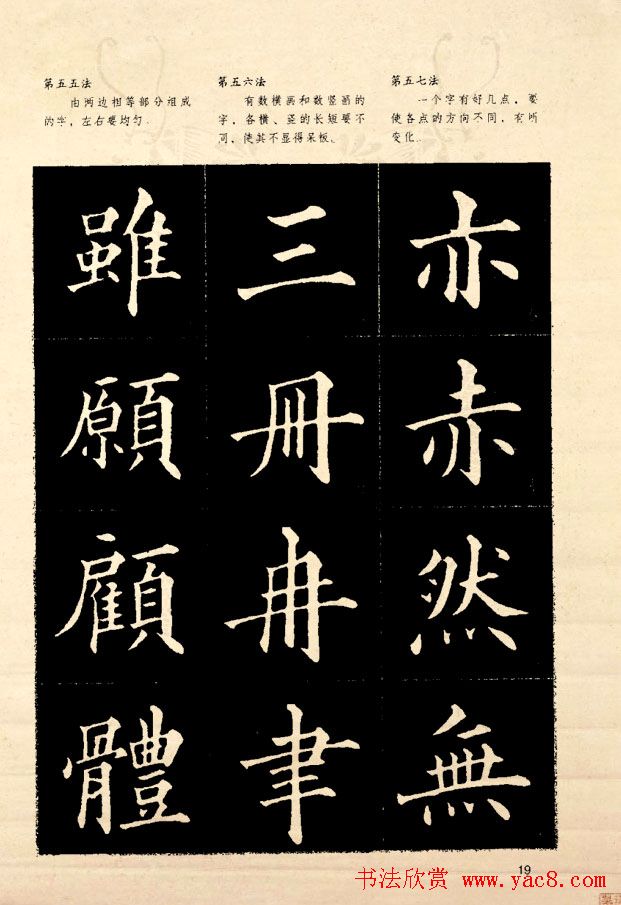 第五五法
由两边相等部分组成
的字，左右要均匀.
第五六法
有数横画和数竖画的
字，各横、竖的长短要不
同，使其不显得呆板。
第五七法
一个字有好几点，要
使各点的方向不同，有所
变化.
雖 三 亦
願 冊 赤
顧 冉 然
體 聿 無
19
书法欣赏 www.yac8.com